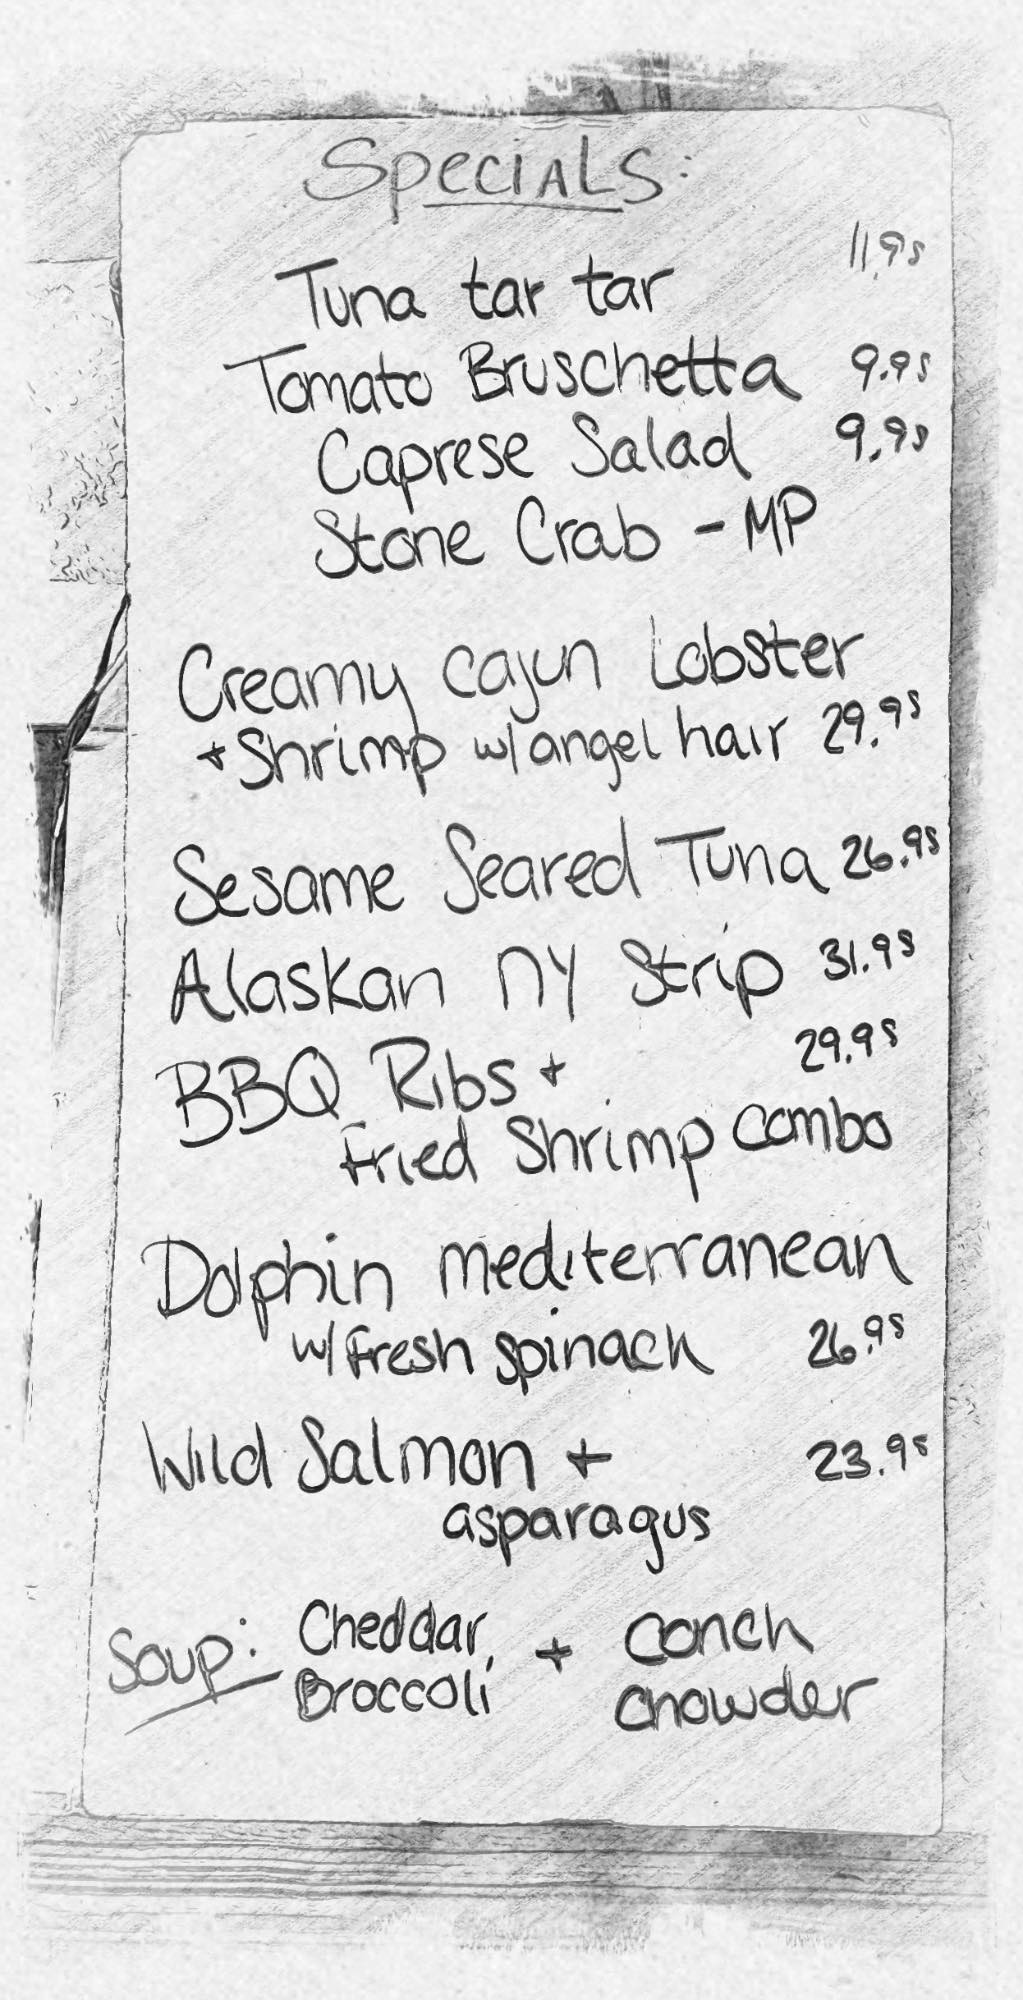 Specials:
11.95
Tuna tar tar
Tomato Bruschetta 9.95
Caprese Salad 9.95
Stone Crab - MP
Creamy Cajun Lobster
+ Shrimp w/ angel hair 29.95
Sesame Seared Tuna 26.95
Alaskan NY Strip 31.95
BBQ Ribs + 29.95
Fried Shrimp Combo
Dolphin mediterranean
w/ Fresh spinach 26.95
Wild Salmon + 23.95
asparagus
Soup: Cheddar + Conch
Broccoli chowder